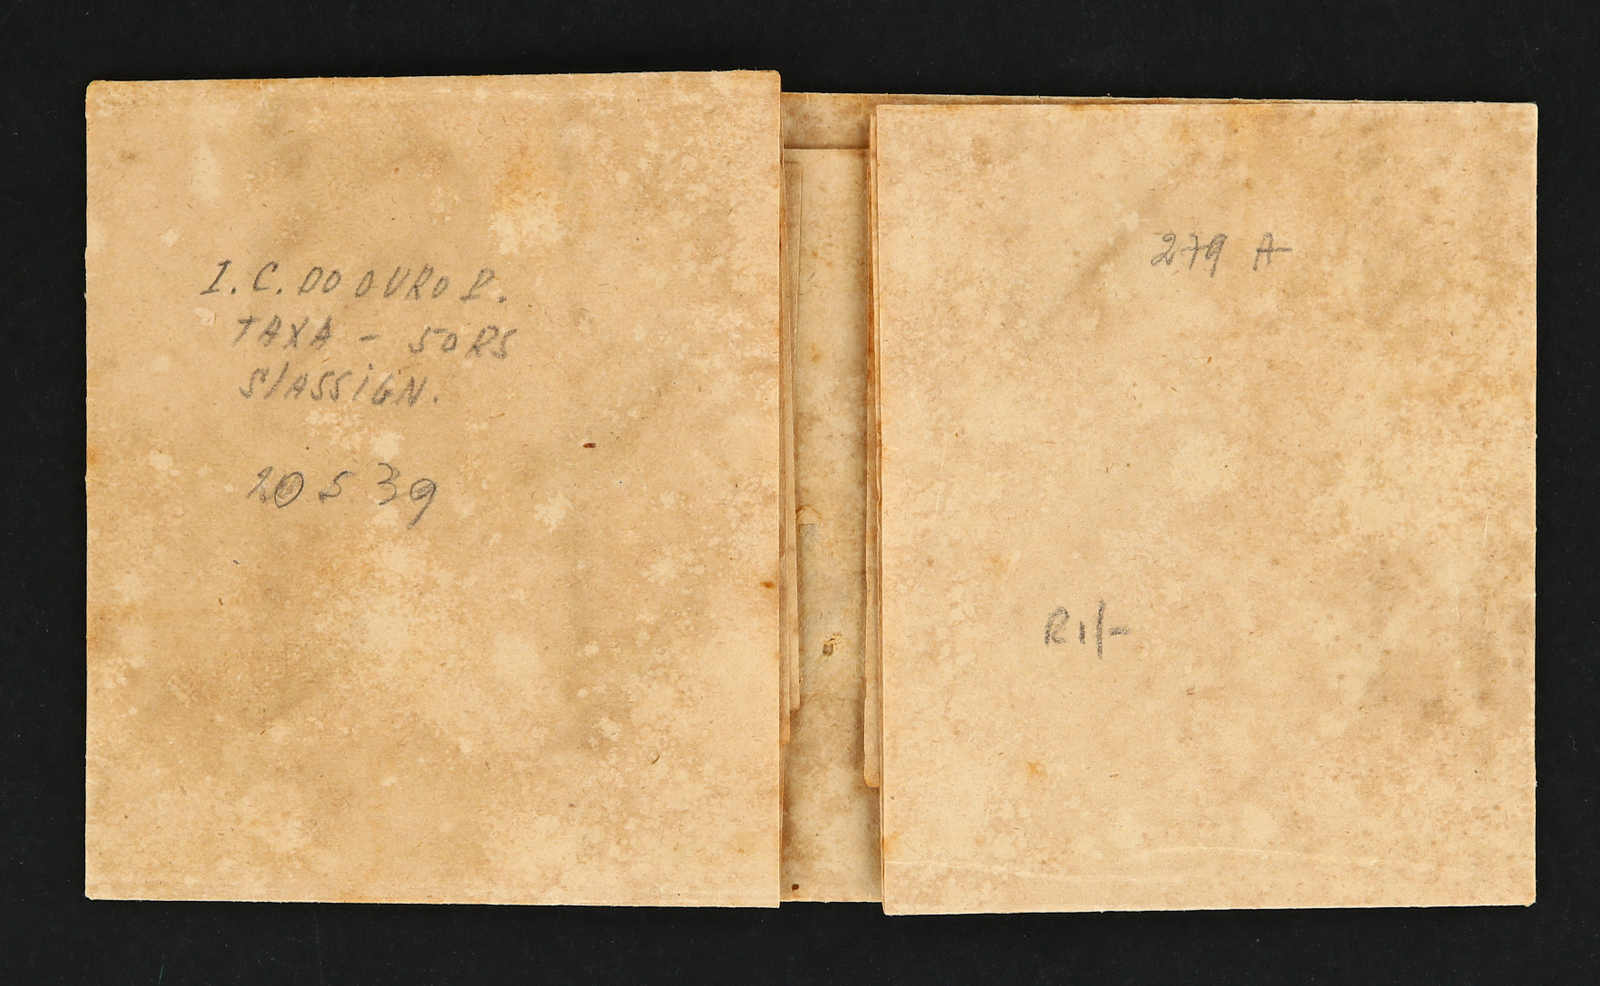 I. C. DO OURO P.
TAXA - 50 RS
S/ASSIGN.
20 5 39
279 A
R 1/-